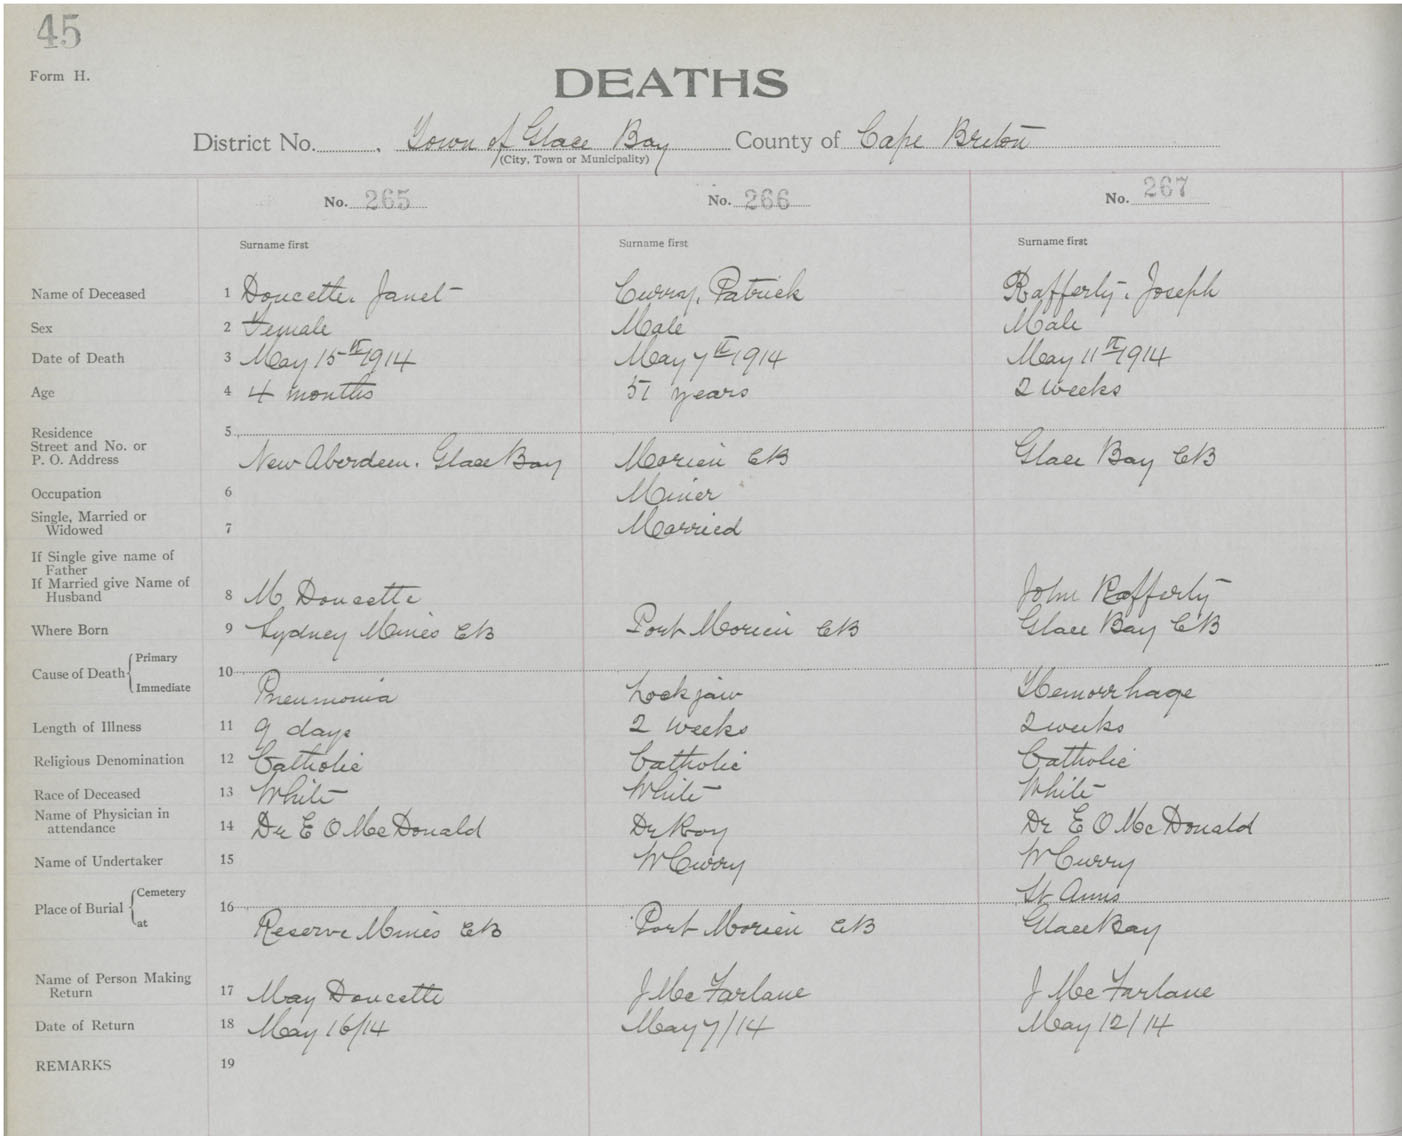 45
Form H.
DEATHS
District No. Town of Glace Bay County of Cape Breton
(City, Town or Municipality)
No. 265 No. 266 No. 267
Surname first Surname first Surname first
Name of Deceased 1 Doucette, Janet Curry, Patrick Rafferty, Joseph
Sex 2 Female Male Male
Date of Death 3 May 15th 1914 May 7th 1914 May 11th 1914
Age 4 4 months 51 years 2 weeks
Residence 5
Street and No. or
P. O. Address New Aberdeen. Glace Bay Morien CB Glace Bay CB
Occupation 6 Miner
Single, Married or
Widowed 7 Married
If Single give name of
Father
If Married give Name of
Husband 8 M Doucette John Rafferty
Where Born 9 Sydney Mines CB Port Morien CB Glace Bay CB
Cause of Death Primary 10
Immediate Pneumonia Lockjaw Hemorrhage
Length of Illness 11 9 days 2 weeks 2 weeks
Religious Denomination 12 Catholic Catholic Catholic
Race of Deceased 13 White White White
Name of Physician in
attendance 14 Dr E O McDonald Dr Roy Dr E O McDonald
Name of Undertaker 15 W Curry W Curry
Place of Burial Cemetery 16 St Anns
at Reserve Mines CB Port Morien CB Glace Bay
Name of Person Making
Return 17 May Doucette J McFarlane J McFarlane
Date of Return 18 May 16/14 May 7/14 May 12/14
REMARKS 19